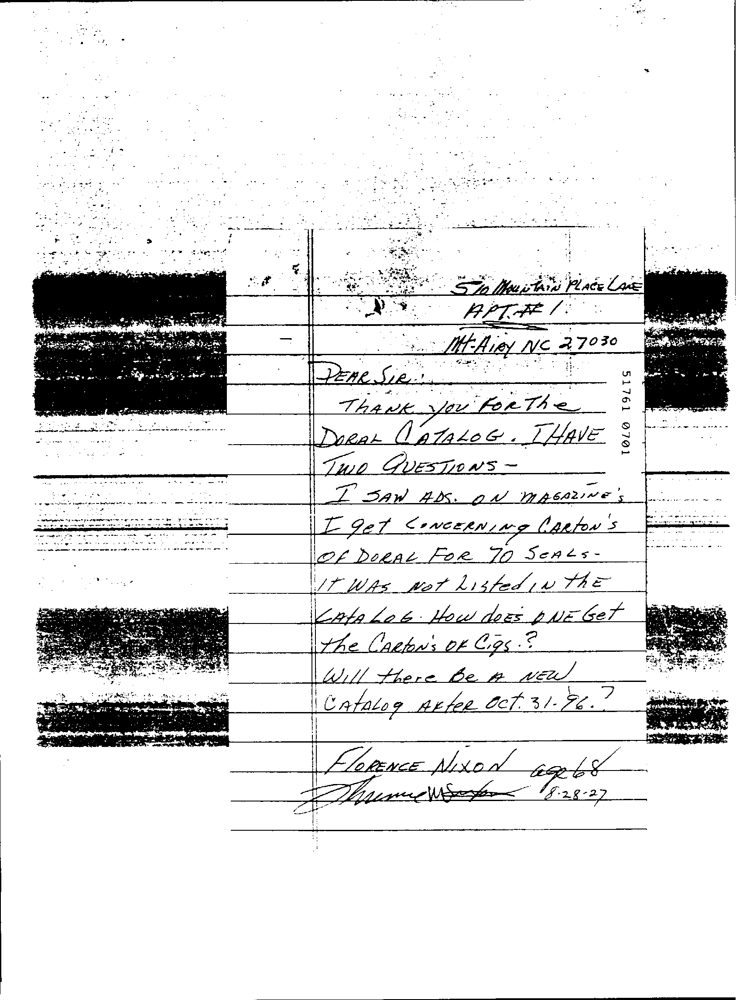 510 Mountain Place Lane
APT. # 1.
Mt-Airy NC 27030
DEAR SIR:
THANK you FOR The
DORAL CATALOG. I HAVE
TWO QUESTIONS -
I SAW ADS. ON MAGAZINE's
I get CONCERNING CARTON's
OF DORAL FOR 70 SEALS-
IT WAS NOT Listed IN THE
CATALOG. HOW does ONE Get
the CARTON's OF Cigs.?
Will there Be A NEW
CATALOG AFTER OCT. 31-96.?
FLORENCE NIXON age 68
8-28-27
51761 0701